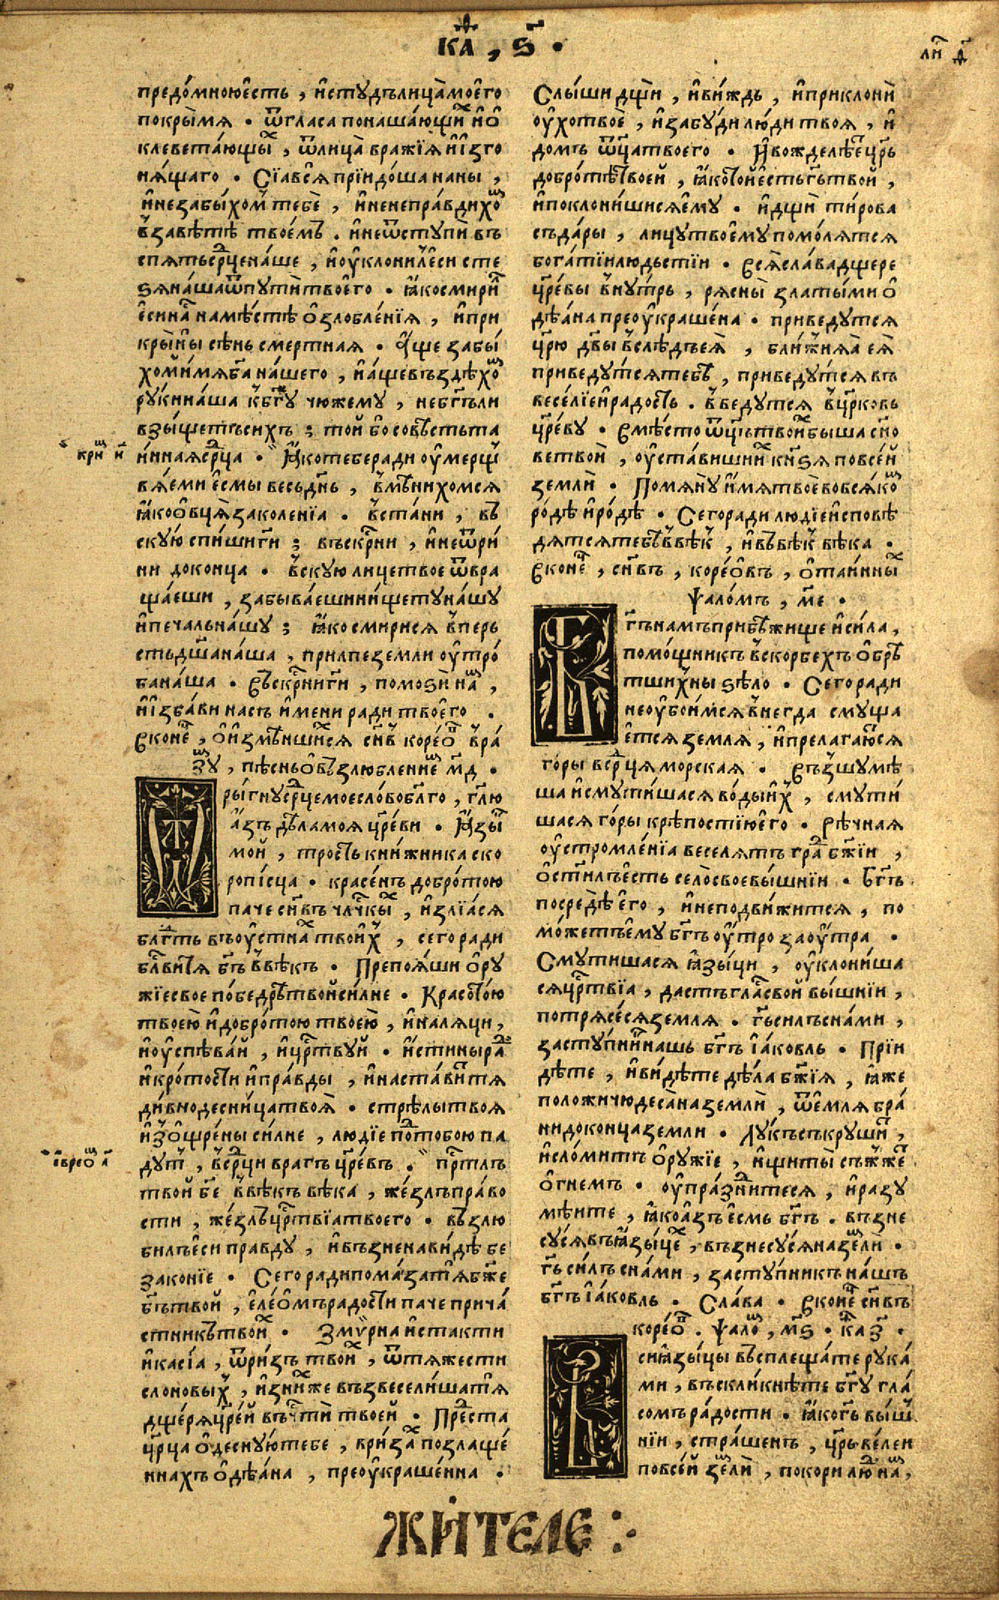 кⷶ҇а , ѕ҃ •
лиⷭ҇ д҃
предо́мною є҆сть , и҆ стꙋдъ лица̀ моего̀
покры́ мѧ • ѿ гласа поноша́ющиⷯ и҆ ѻ҆
клевета́ющыⷯ , ѿ лица̀ вра́жїѧ и҆ и҆зго
нѧ́щаго • Сїѧ̀ всѧ̀ прїидо́ша на ны ,
и҆ не забы́хом тебѐ , и҆ не непра́вдихоⷨ
в завѣ́тѣ твое́мъ . и҆ не ѿстꙋпѝ въ
спѧть срⷣце на́ше , и҆ оу҆клони́лъ є҆си сте
ѕѧ̀ на́ша ѿ пꙋтѝ твоего̀ • ꙗ҆́ко смириⷧ҇
є҆си наⷭ҇ на мѣ́стѣ ѻ҆злобле́нїѧ , и҆ при
кры́ ны сѣ́нь смертнаѧ • а҆́ще забы́
хом и҆́мѧ бг҃а на́шего , и҆ а҆́ще въздѣ́хоⷨ
рꙋ́ки на́ша к бг҃ꙋ чюжемꙋ , не бг҃ъ ли
взы́щетъ сихъ ; той бо со́вѣсть та
криⷩ҇ и҃
и́ннаѧ срⷣца • Ꙗ҆́ко тебе ра́ди оу҆мерщ
влѧ́еми є҆смы весь дн҃ь , вмѣни́хомсѧ
ꙗ҆́ко ѻ҆́вца заколе́нїа • въста́ни , въ
скꙋ́ю спи́ши гⷭ҇и ; въскрⷭ҇ни , и҆ не ѿри́
ни до конца • въскꙋю лице твое ѿвра
ща́еши , забыва́еши нищетꙋ на́шꙋ
и҆ печаль на́шꙋ ; ꙗ҆́ко смирисѧ в персть
дш҃а на́ша , прилпе земли оу҆тро́
ба на́ша • Въскрⷭ҇ни гⷭ҇и , помозѝ наⷨ ,
и҆ и҆зба́ви насъ и҆́мени ра́ди твоего̀ .
В конеⷰ҇ , ѻ҆ и҆змѣ́ншиⷯсѧ сн҃ѡⷡ҇ коре́ѻⷡ҇ в ра́
зꙋⷨ , пѣ́снь ѻ҆ възлю́бленнеⷨ м҃д •
Ѿры́гнꙋ срⷣце мое сло́во бл҃го , гл҃ю
а҆́зъ дѣла моѧ̀ цр҃еви • Ꙗ҆зы́ⷦ҇
мой , трость кни́жника ско
ропи́сца • красе́нъ добро́тою
паче сн҃ѡвъ чл҃чкыⷯ , и҆злїѧ́сѧ
блгⷣть въ оу҆стнаⷯ твои́х , сего ра́ди
бл҃ви́ тѧ бг҃ъ в вѣ́къ • Препоѧ́ши ѻ҆рꙋ́
жїе свое по бедрѣ̀ твоей си́лне • Красото́ю
твоею и҆ добро́тою твоею̀ , и҆ налѧ́ци ,
и҆ оу҆спѣва́й , и҆ црⷭ҇твꙋй • и҆́стины раⷣ
и҆ кро́тости и҆ пра́вды , и҆ наста́виⷮ тѧ
ди́вно десни́ца твоѧ̀ • стрѣ́лы твоѧ
и҆зѡ҆щре́ны си́лне , лю́дїе поⷣ тобо́ю па
є҆вреѻⷨ а҃
дꙋт , в срⷣци врагъ цр҃евъ . прⷭ҇тлъ
твой бж҃е в вѣ́къ вѣка , же́злъ пра́во
сти , же́злъ црⷭ҇твїа твоего • възлю
билъ є҆си правдꙋ , и҆ възненави́дѣ бе
законїе • Сего ра́ди пома́за тѧ бж҃е
бг҃ъ твой , є҆ле́ѻмъ ра́дости паче прича́
стникъ твоиⷯ • Зми́рна и҆ стакти
и҆ ка́сїа , ѿ ризъ твоиⷯ , ѿ тѧжести
слоновыⷯ , и҆з ниⷯ же възвесели́ша тѧ̀
дще́рѧ цр҃ей въ чⷭ҇ти твоей • Преⷣста
цр҃ца ѻ҆деснꙋ́ю тебе , в ри́заⷯ позлаще́
ннахъ ѻ҆дѣ́ана , преоу҆краше́нна .
Слы́ши дщѝ , и҆ ви́ждь , и҆ приклонѝ
оу҆́хо твоѐ , и҆ забꙋ́ди лю́ди твоѧ , и҆
домъ ѿц҃а твоего • И҆ вожделѣ́еⷮ цр҃ь
добро́тѣ твоей , ꙗ҆́ко той є҆сть гⷭ҇ь твой ,
и҆ поклони́шисѧ є҆мꙋ • и҆ дщѝ ти́рова
съ да́ры , лицꙋ твоемꙋ помо́лѧтсѧ
бога́тїи людьстїи • Всѧ̀ сла́ва дщере
цр҃евы вънꙋтрь , рѧ́сны златы́ми ѻ҆
дѣ́ана преоу҆краше́на • приведꙋтсѧ
цр҃ю дв҃ы вслѣ́дъ еѧ̀ , бли́жнѧѧ еѧ
приведꙋ́тсѧ тебѣ̀ , приведꙋ́тсѧ въ
весе́лїе и҆ ра́дость . въведꙋтсѧ в цр҃ковь
цр҃евꙋ • Вмѣсто ѿц҃ъ твои́х быша сн҃о
ве твой , оу҆ста́виши иⷯ кнѧ́зѧ по все́й
земли́ • Помѧнꙋ̀ и҆́мѧ твое во всѧ́коⷨ
ро́дѣ и҆ ро́дѣ • Сего ра́ди лю́дїе и҆спове
дѧтсѧ тебѣ̀ в вѣ́к , и҆ въ вѣ́к вѣка •
В коне́ⷰ҇ , сн҃ѡвъ , коре́ѻвъ , ѻ҆ та́йныⷯ
ѱало́мъ , м҃е •
Бг҃ъ намъ прибѣ́жище и҆ си́ла ,
помо́щникъ в скорбехъ ѻ҆брѣ́
тших ны ѕѣло • Сего ра́ди
не оу҆бои́мсѧ внегда смꙋща
ется землѧ , и҆ прелага́ютсѧ
го́ры в срⷣца морскаѧ • Възшꙋмѣ́
ша и҆ смꙋти́шасѧ во́ды и҆́х , смꙋти́
шасѧ го́ры крѣ́постїю его • Рѣ́чнаѧ
оу҆стромле́нїа веселѧтъ граⷣ бж҃їи ,
ѻ҆сти́лъ єсть село̀ свое вы́шнїи • Бг҃ъ
посредѣ̀ е҆го , и҆ не подви́житсѧ , по
мо́жетъ емꙋ бг҃ъ оу҆́тро за оу҆́тра •
Смꙋти́шасѧ ꙗ҆зы́ци , оу҆клони́ша
сѧ црⷭ҇твїа , дастъ глаⷭ҇ свой вы́шнїи ,
потрѧсе́сѧ землѧ . гⷭ҇ь силъ с на́ми ,
застꙋ́пниⷦ҇ нашь бг҃ъ і҆а́ковль • Прїи
дѣ́те , и҆ ви́дѣте дѣла̀ бж҃їѧ , ꙗ҆́же
положѝ чюдеса̀ на землѝ , ѿе́млѧ бра́
ни до конца земли • Лꙋ́къ съкрꙋшиⷮ ,
и҆ сло́митъ ѻ҆рꙋ́жїе , и҆ щи́ты съжже́ⷮ
ѻ҆гнемъ • оу҆пра́знитесѧ , и҆ разꙋ
мѣ́ите , ꙗ҆́ко а҆́зъ єсмь бг҃ъ . възне
сꙋ́сѧ въ ꙗ҆зы́цеⷯ , възнесꙋ́сѧ на землѝ .
гⷭ҇ь силъ с на́ми , застꙋ́пникъ на́шъ
бг҃ъ і҆а́ковль • Сла́ва • В конеⷰ҇ сн҃ѡвъ
коре́ѻⷡ҇ . ѱалоⷨ , м҃ѕ • каⷴ҇ з҃ •
Вси ꙗ҆зы́цы въсплеща́те рꙋка́
ми , въскли́кнѣте бг҃ꙋ гла́
сомъ ра́дости • ꙗ҆́ко гⷭ҇ь вы́ш
нїи , стра́шенъ , цр҃ь ве́лей
по все́й землѝ , покори люⷣи наⷨ ,
ЖИ́ТЕЛЕ :·